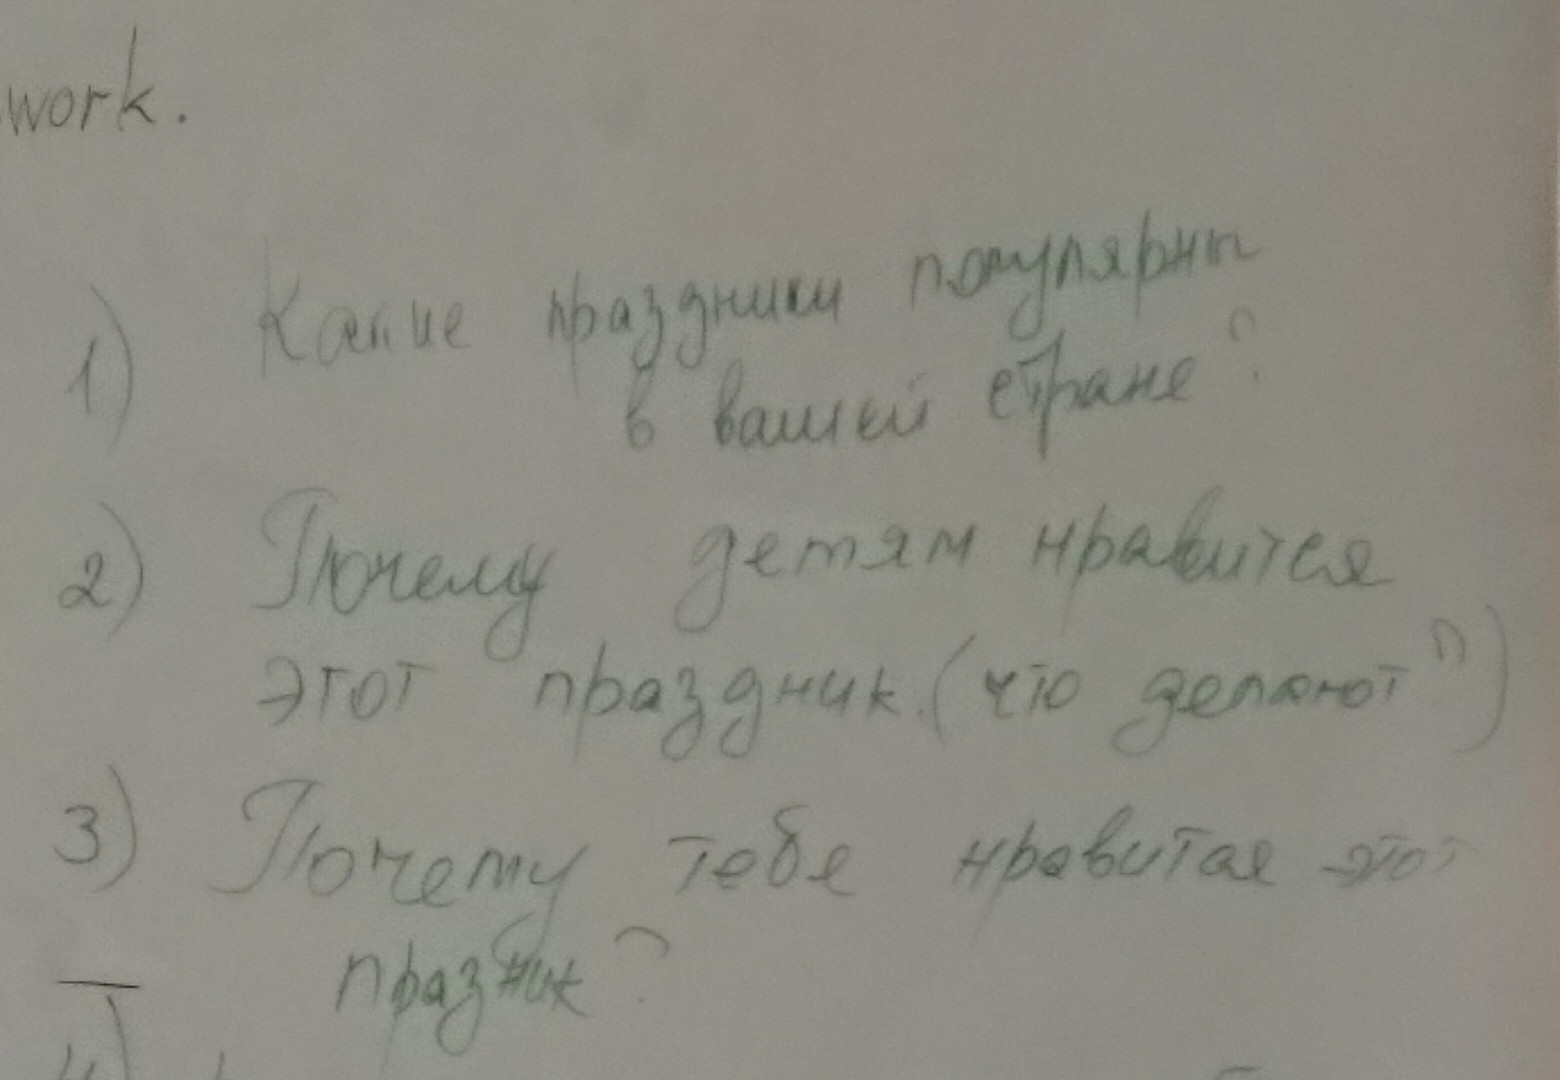 work.
1) Какие праздники популярны
в вашей стране?
2) Почему детям нравится
этот праздник. (что делают?)
3) Почему тебе нравится этот
празник?
4)